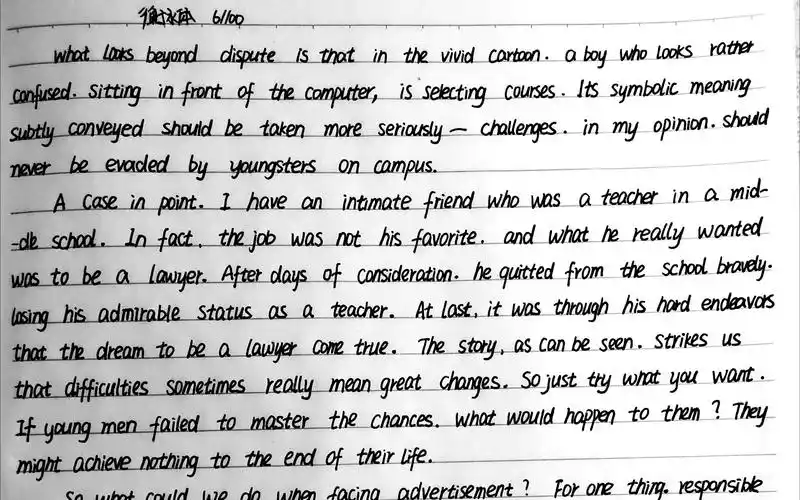 6/100
what looks beyond dispute is that in the vivid cartoon. a boy who looks rather
confused. sitting in front of the computer, is selecting courses. Its symbolic meaning
subtly conveyed should be taken more seriously — challenges. in my opinion. should
never be evaded by youngsters on campus.
A case in point. I have an intimate friend who was a teacher in a mid-
-dle school. In fact. the job was not his favorite. and what he really wanted
was to be a lawyer. After days of consideration. he quitted from the school bravely.
losing his admirable status as a teacher. At last, it was through his hard endeavors
that the dream to be a lawyer come true. The story, as can be seen. strikes us
that difficulties sometimes really mean great changes. So just try what you want.
If young men failed to master the chances. what would happen to them? They
might achieve nothing to the end of their life.
So what could we do when facing advertisement? For one thing. responsible